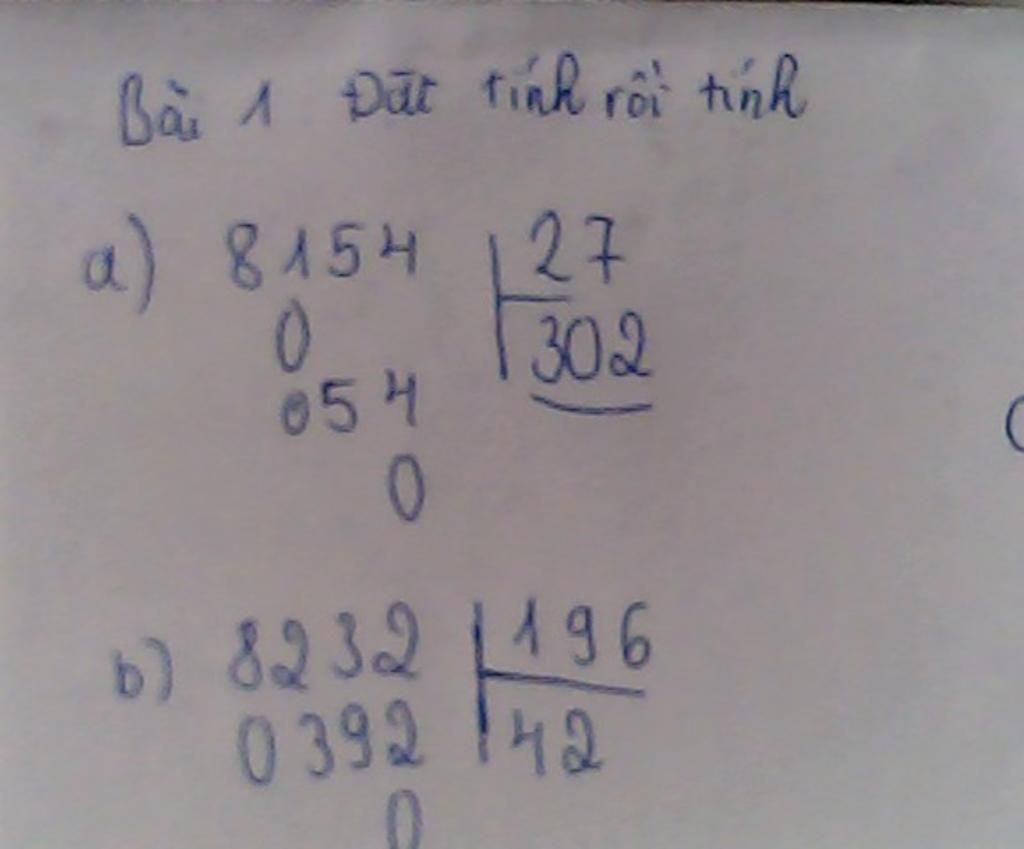 Bài 1 Đặt tính rồi tính
a) 8154 27
0 302
054
0
b) 8232 196
0392 42
0